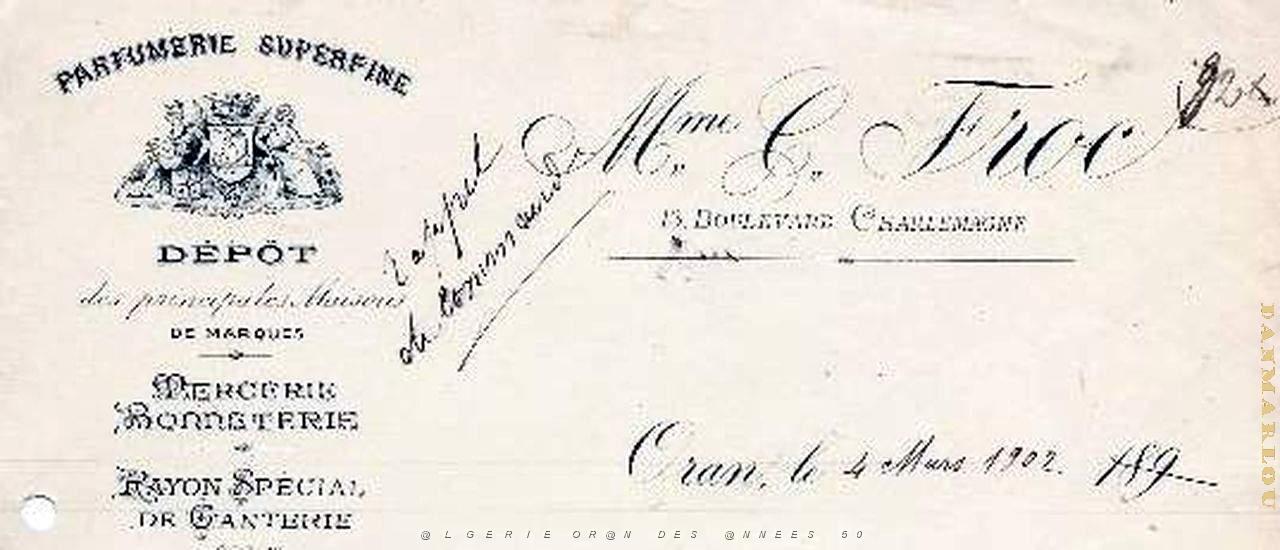 PARFUMERIE SUPERFINE
DÉPÔT
des principales Maisons
DE MARQUES
MERCERIE
BONNETERIE
RAYON SPÉCIAL
DE GANTERIE
de commande
Mme G. Froc
13, BOULEVARD CHARLEMAGNE
Oran, le 4 Mars 1902. 189
@LGERIE OR@N DES @NNEES 50
DANMARLOU